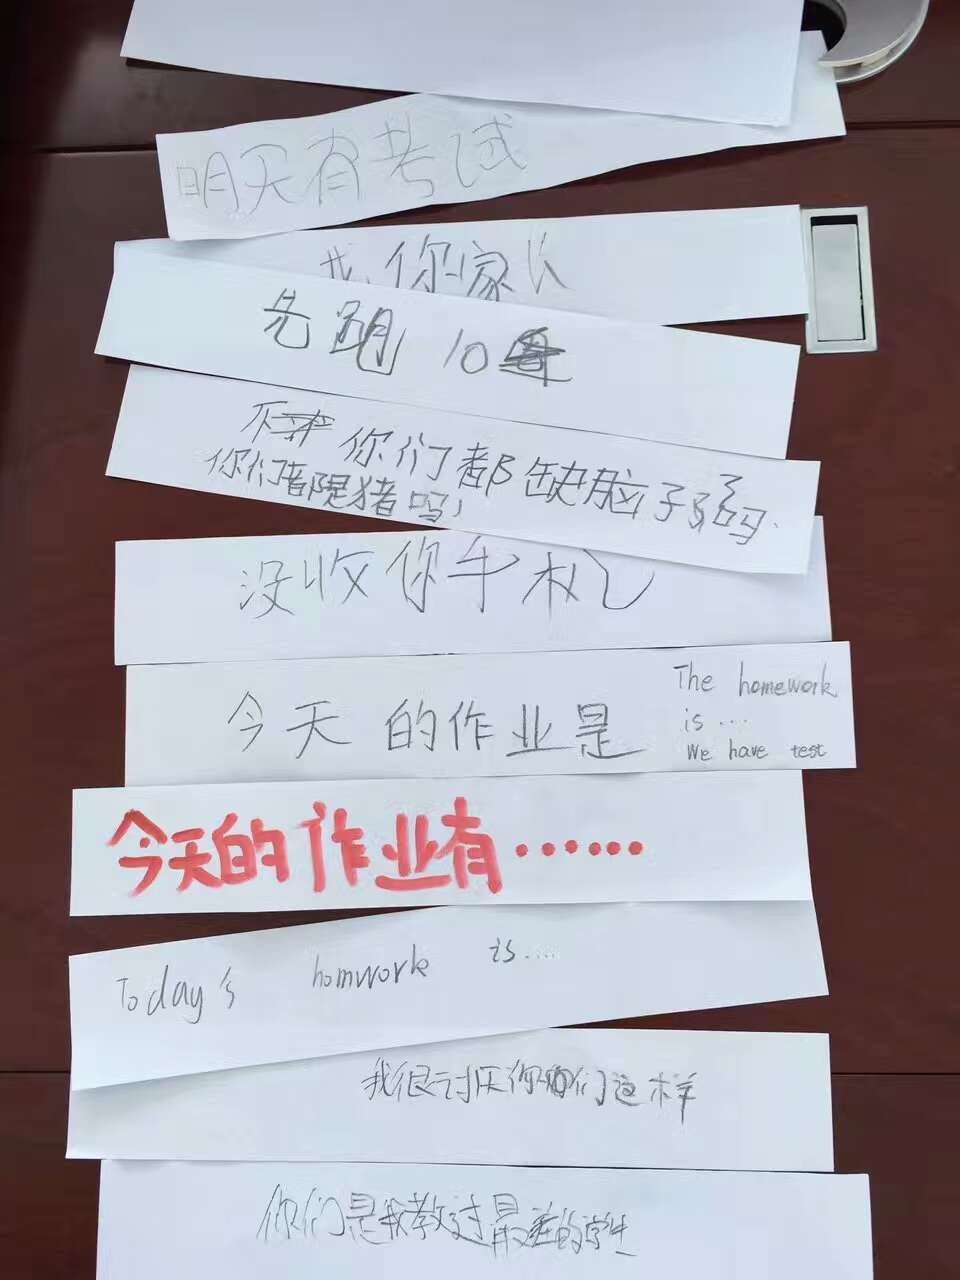 明天有考试
找你家长
先跑10
你们都缺脑子吗
你们都是猪吗
没收你手机
今天的作业是
The homework
is...
We have test
今天的作业有……
Today's homwork is....
我很讨厌你们这样
你们是我教过最差的学生